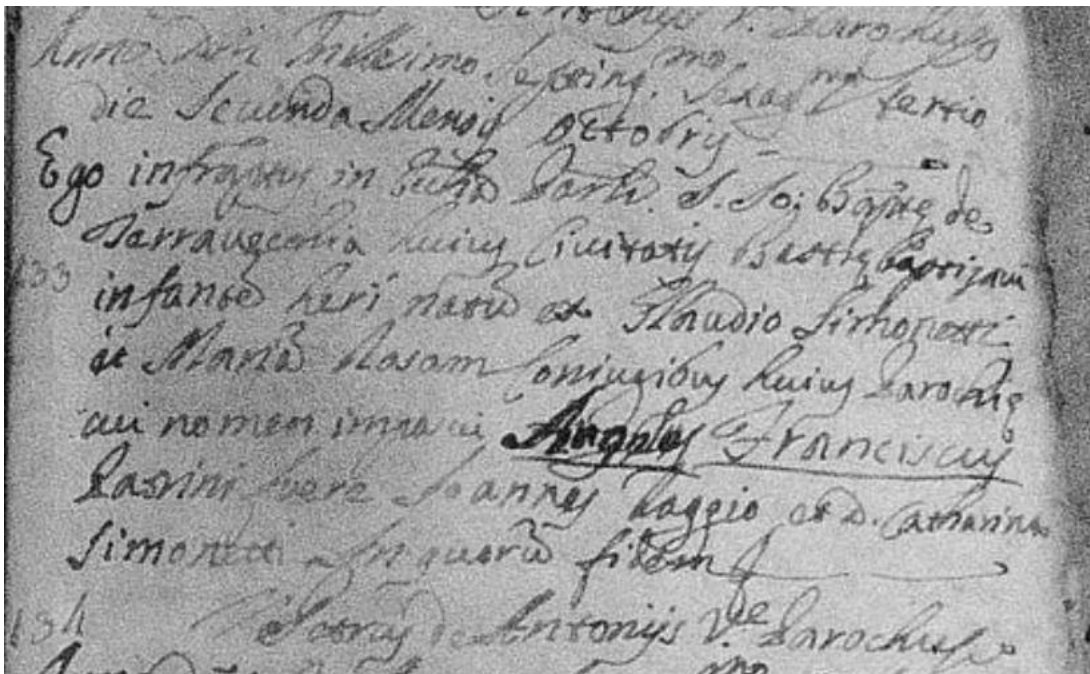 V. Parochus
Anno Dñi Millesimo Septing.mo Sexag.mo tertio
die Secunda Mensis Octobris
Ego infrãptus in Ecclia Parli. S. Jo: Baptę de
Terraveccia huius Civitatis Bastię baptizavi
133
infantẽ heri natũ ex Claudio Simonetti
et Mariã Rosam Coniugibus huius Parochię
cui nomen imposui Angelus Franciscus
Patrini fuere Joannes Baggio et D. Catharina
Simonetti In quorũ fidem
134
Petrus de Antonijs V.e Parochus